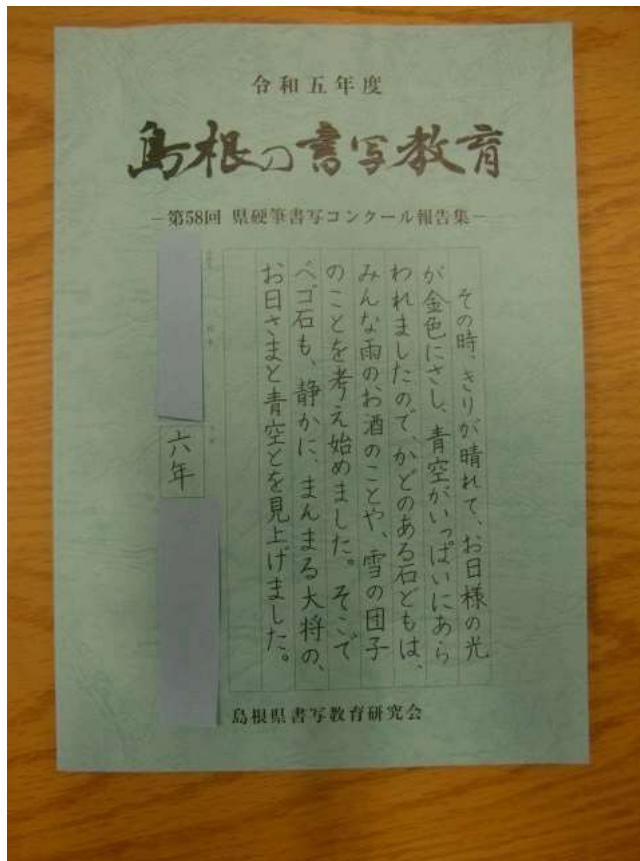 令和五年度
島根の書写教育
－第58回 県硬筆書写コンクール報告集－
その時、きりが晴れて、お日様の光
が金色にさし、青空がいっぱいにあら
われましたので、かどのある石どもは、
みんな雨のお酒のことや、雪の団子
のことを考え始めました。そこで
ベゴ石も、静かに、まんまる大将の、
お日さまと青空とを見上げました。
六年
島根県書写教育研究会